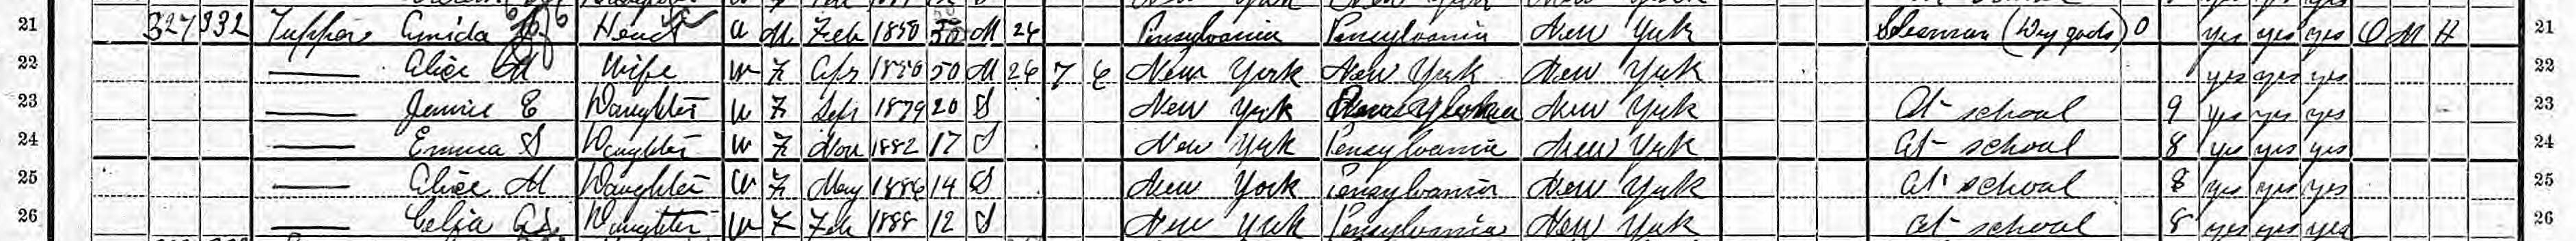 21 327 332 Tupper Head W M Feb 1850 50 M 26 Pensylvania Pensylvania New York (Dry goods) 0 yes yes yes O M H 21
22 —— Alice M Wife W F Apr 1850 50 M 26 7 6 New York New York New York yes yes yes 22
23 —— Jennie E Daughter W F Sep 1879 20 S New York New York At school 9 yes yes yes 23
24 —— Emma S Daughter W F Nov 1882 17 S New York Pensylvania New York At school 8 yes yes yes 24
25 —— Alice M Daughter W F May 1886 14 S New York Pensylvania New York At school 8 yes yes yes 25
26 —— Celia Daughter W F Feb 1888 12 S New York Pensylvania New York At school 8 yes yes yes 26